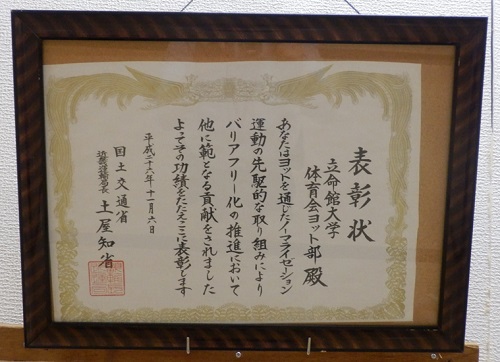 表彰状
立命館大学
体育会ヨット部 殿
あなたはヨットを通したノーマライゼーション
運動の先駆的な取り組みにより
バリアフリー化の推進において
他に範となる貢献をされました
よってその功績をたたえここに表彰します
平成二十六年十一月六日
国土交通省
近畿運輸局長 土屋知省